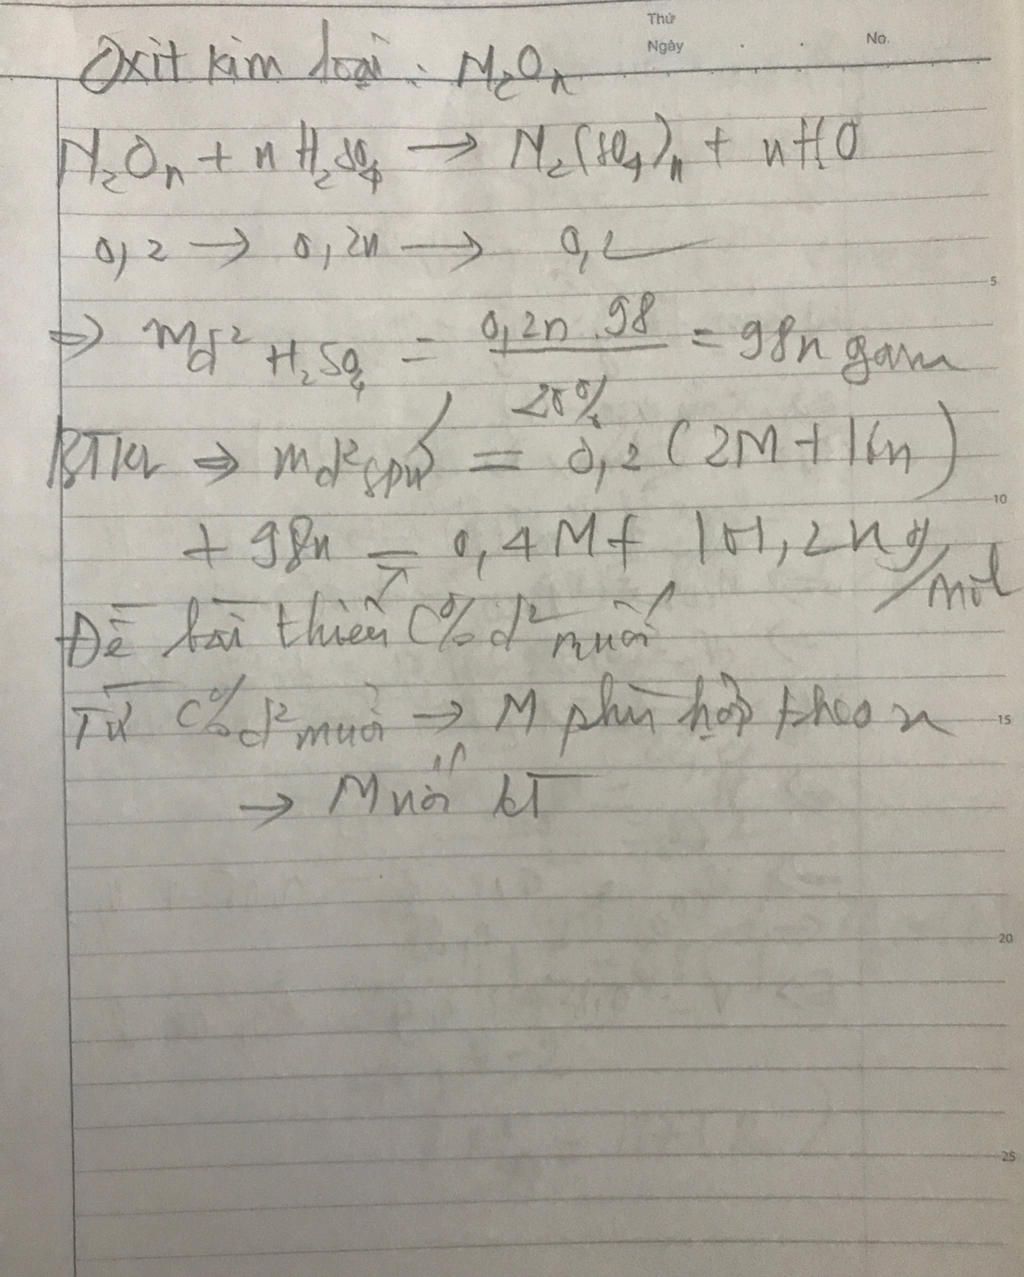 Thứ
Ngày . . No.
Oxit kim loại : M₂Oₙ
M₂Oₙ + nH₂SO₄ → M₂(SO₄)ₙ + nHO
0,2 → 0,2n → 0,2
⇒ md² H₂SO₄ = 0,2n.98 / 20% = 98n gam
5
BTKL ⇒ md² spứ = 0,2 (2M + 16n)
10
+ 98n = 0,4M + 101,2n g/mol
Đề bài thiếu C% d² muối
Từ C% d² muối → M phù hợp theo n
15
→ Muối KT
20
25